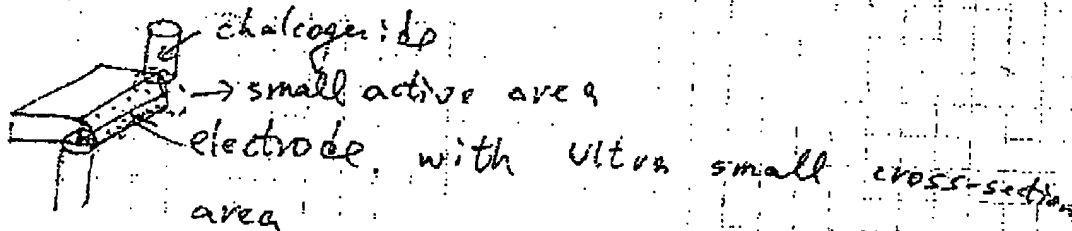 chalcogenide
→ small active area
electrode, with Ultra small cross-section
area